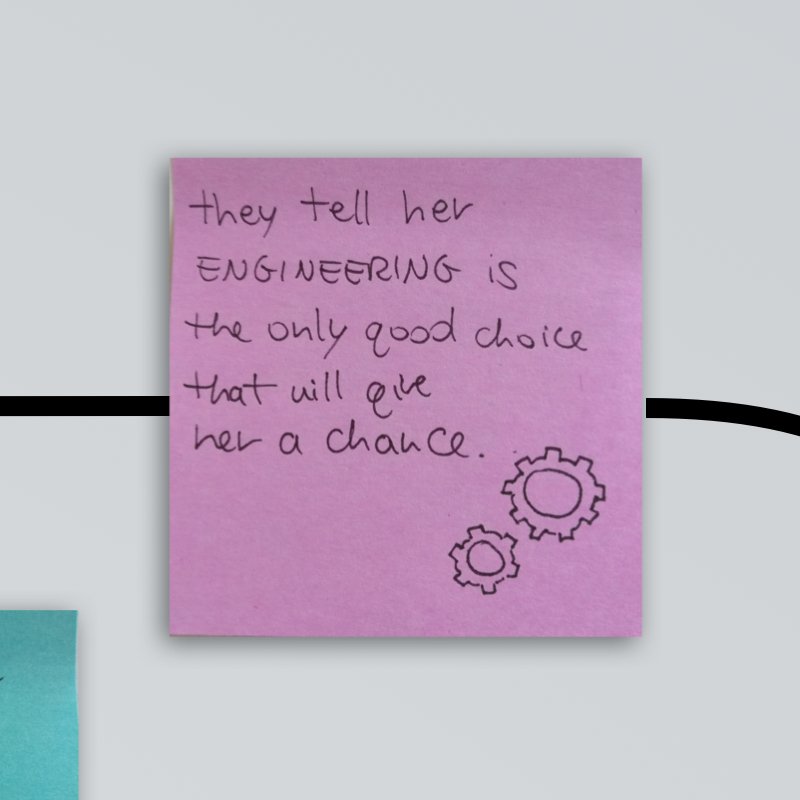 they tell her
ENGINEERING is
the only good choice
that will give
her a chance.